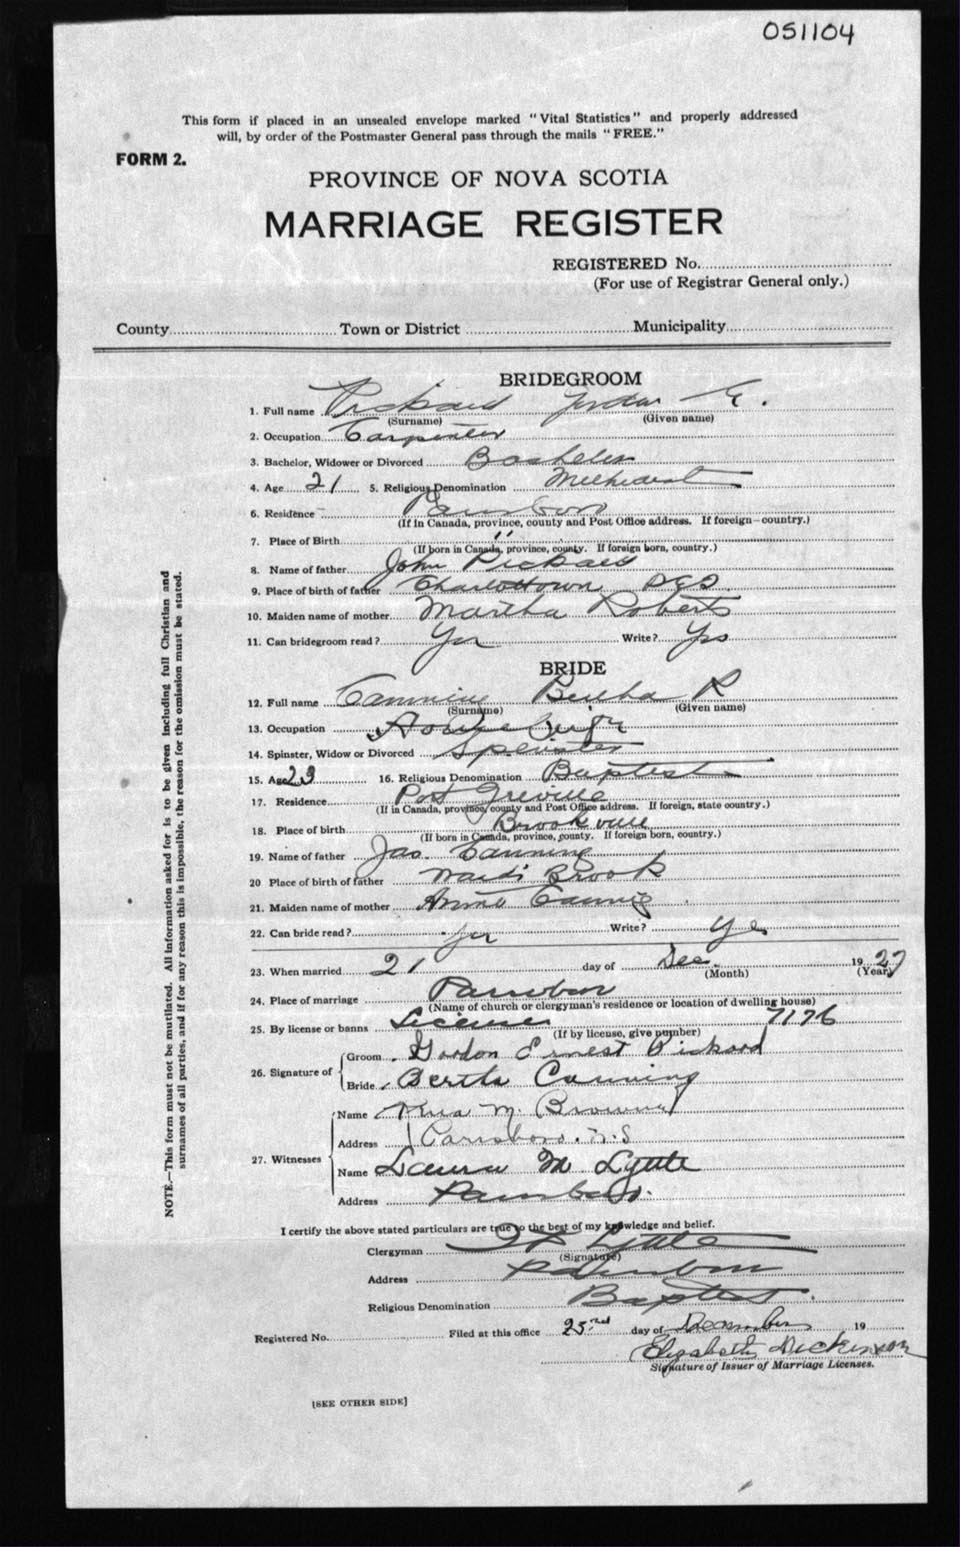 051104
This form if placed in an unsealed envelope marked "Vital Statistics" and properly addressed
will, by order of the Postmaster General pass through the mails "FREE."
FORM 2.
PROVINCE OF NOVA SCOTIA
MARRIAGE REGISTER
REGISTERED No.
(For use of Registrar General only.)
County Town or District Municipality
BRIDEGROOM
1. Full name Pickard Gordon E.
(Surname) (Given name)
2. Occupation Carpenter
3. Bachelor, Widower or Divorced Bachelor
4. Age 21 5. Religious Denomination Methodist
6. Residence Parrsboro
(If in Canada, province, county and Post Office address. If foreign—country.)
7. Place of Birth "
(If born in Canada, province, county. If foreign born, country.)
8. Name of father John Pickard
9. Place of birth of father Charlottown
10. Maiden name of mother Martha Roberts
11. Can bridegroom read? Yes Write? Yes
BRIDE
12. Full name Canning Bertha R
(Surname) (Given name)
13. Occupation
14. Spinster, Widow or Divorced Spinster
15. Age 23 16. Religious Denomination Baptist
17. Residence Port Greville
(If in Canada, province, county and Post Office address. If foreign, state country.)
18. Place of birth Brookville
(If born in Canada, province, county. If foreign born, country.)
19. Name of father Jas. Canning
20 Place of birth of father Wards Brook
21. Maiden name of mother Annie Canning
22. Can bride read? Yes Write? Yes
23. When married 21 day of Dec. 1927
(Month) (Year)
24. Place of marriage Parrsboro
(Name of church or clergyman's residence or location of dwelling house)
25. By license or banns License 7176
(If by license, give number)
26. Signature of
Groom Gordon Ernest Pickard
Bride Berta Canning
27. Witnesses
Name M. Browne
Address Parrsboro. N.S
Name Laura M Lyttle
Address Parrsboro.
I certify the above stated particulars are true to the best of my knowledge and belief.
Clergyman Lyttle
(Signature)
Address Parrsboro
Religious Denomination Baptist.
Registered No. Filed at this office 23rd day of December 19
Elizabeth Dickinson
Signature of Issuer of Marriage Licenses.
[SEE OTHER SIDE]
NOTE.—This form must not be mutilated. All information asked for is to be given including full Christian and
surnames of all parties, and if for any reason this is impossible, the reason for the omission must be stated.